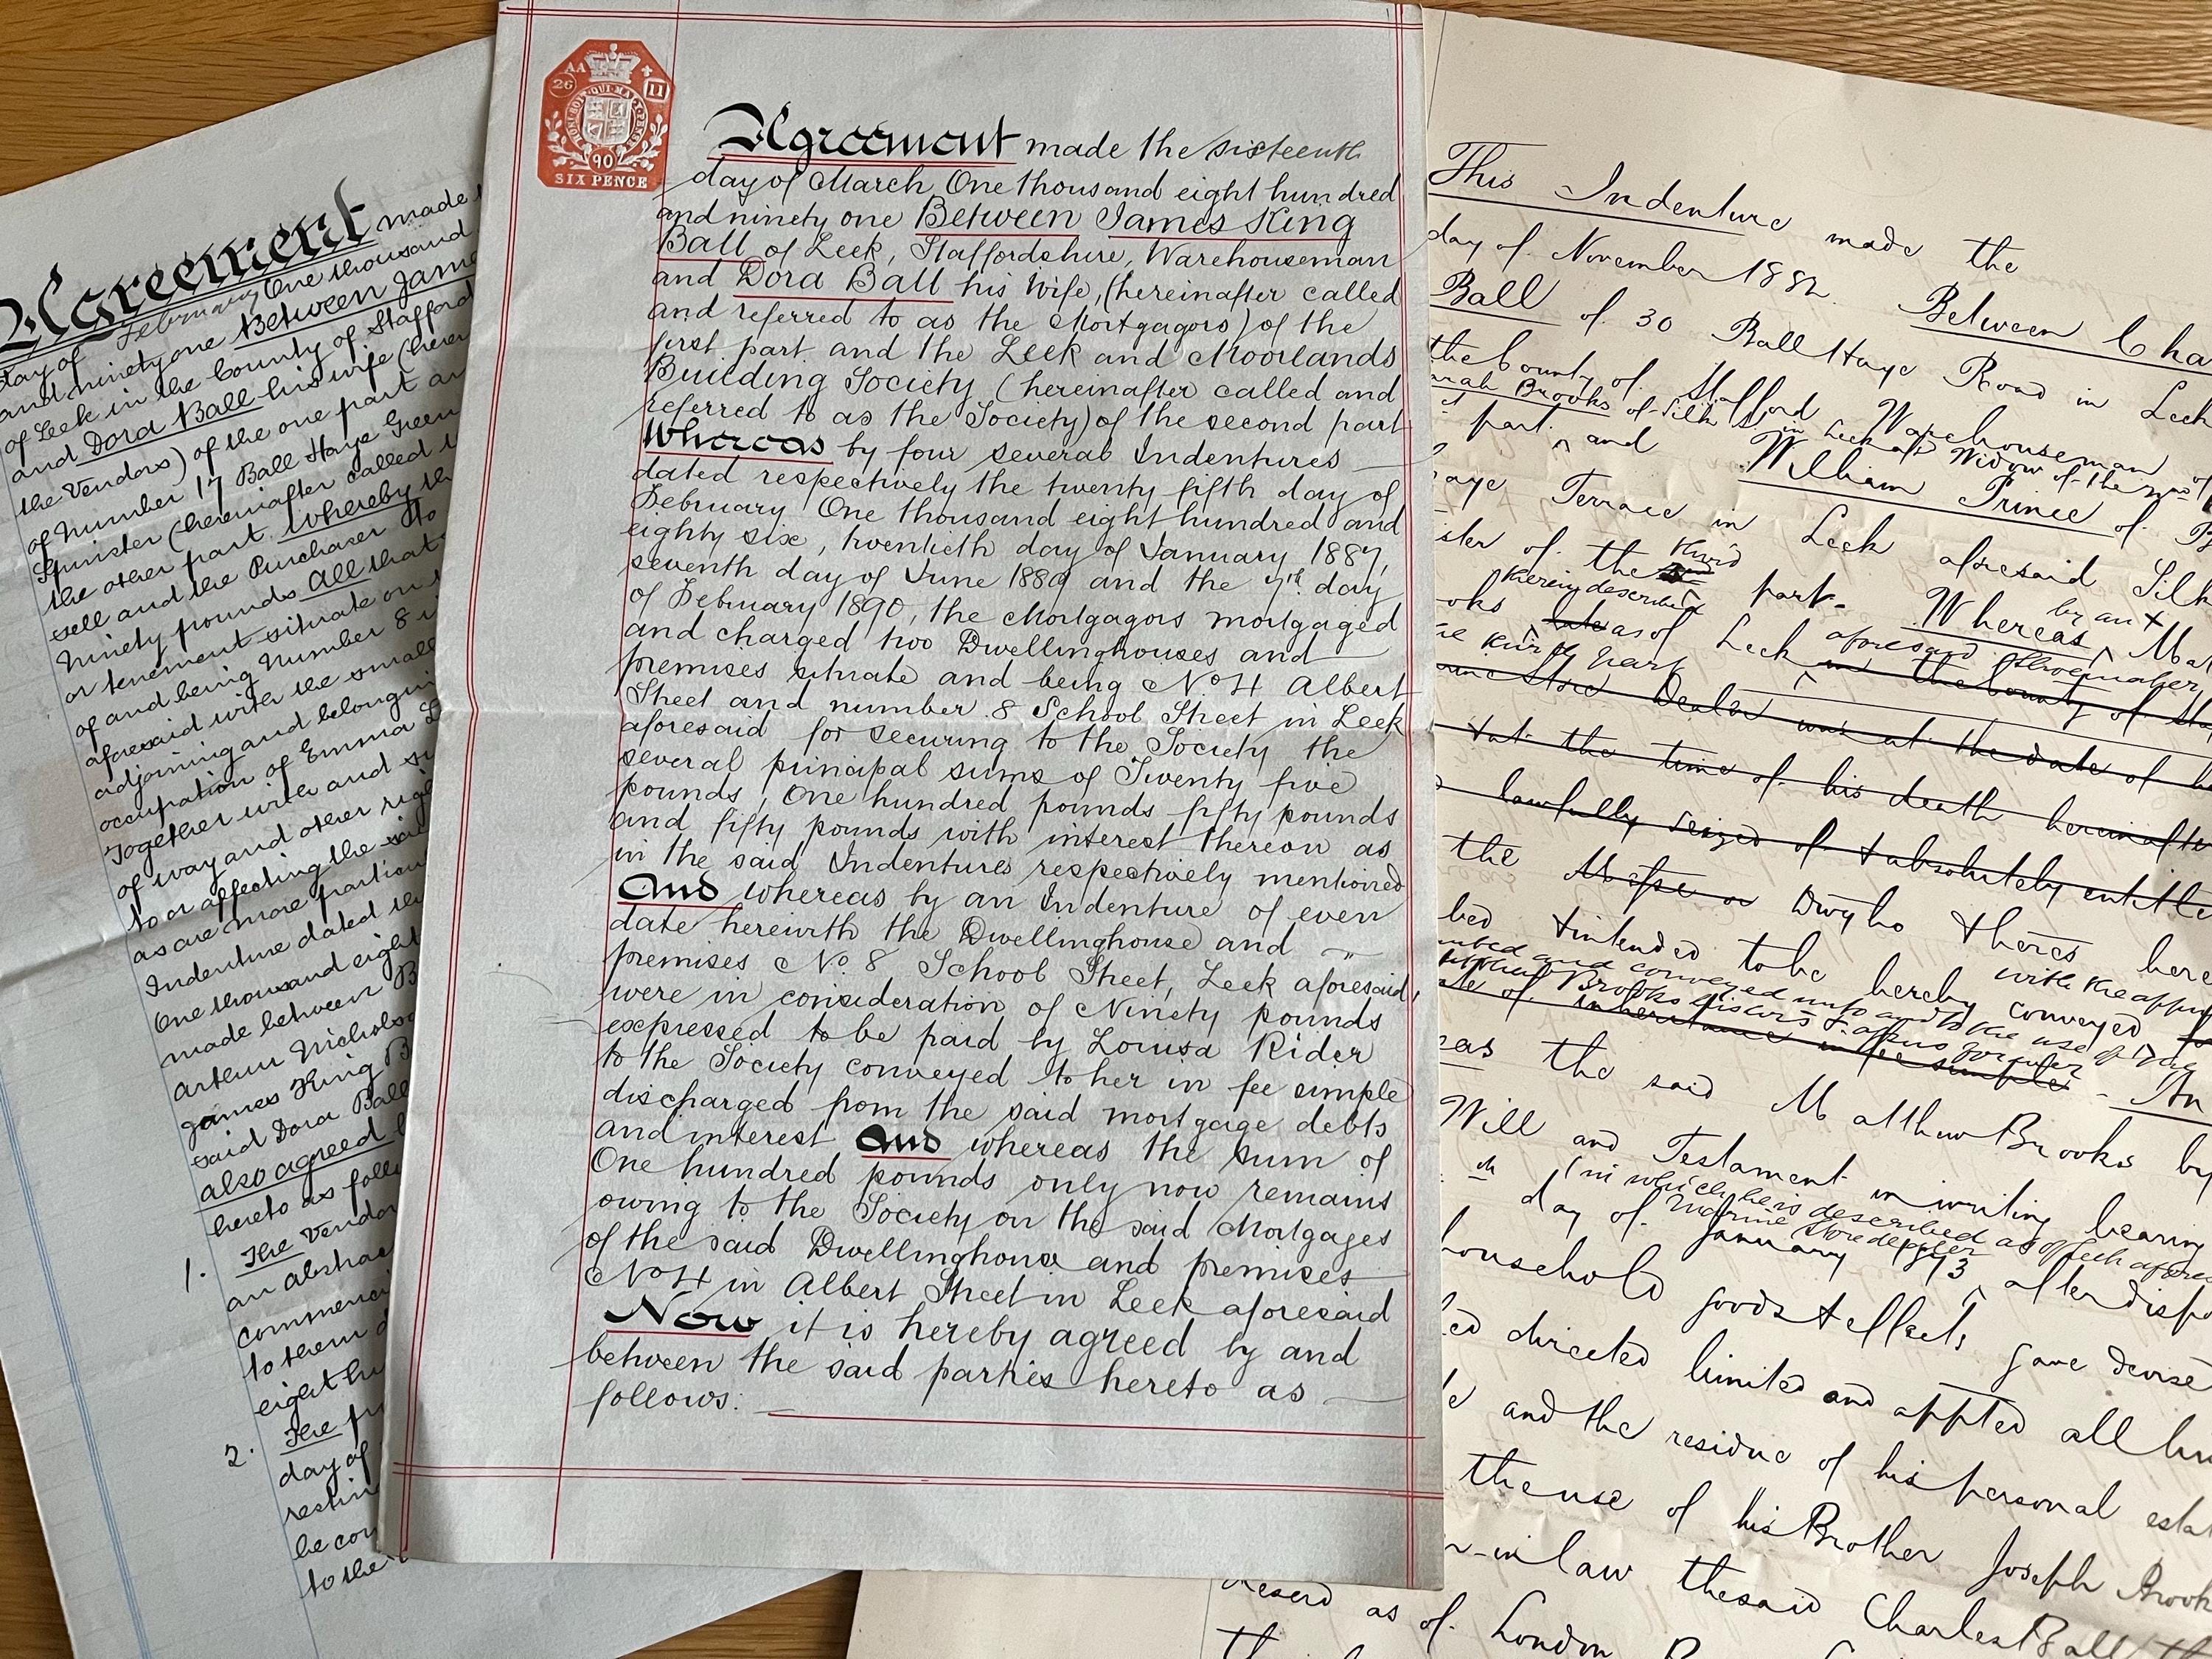 Agreement made
day of February One thousand
and ninety one Between Jame
of Leek in the County of Stafford
and Dora Ball his wife (herei
the Vendors) of the one part an
of Number 17 Ball Haye Green
Spinster (hereinafter called t
the other part Whereby th
sell and the Purchaser to
Ninety pounds All that
or tenement situate on
of and being Number 8 i
aforesaid with the small
adjoining and belongin
occupation of Emma L
Together with and su
of way and other rig
to or affecting the
as are more particu
Indenture dated the
One thousand eight
made between B
Arthur Nicholso
James King B
said Dora Ball
also agreed b
hereto as follo
1. The Vendo
an abstrac
commenci
to them
eight hu
2. The
day of
restin
be con
to the
AA
26 11
HONI·SOIT·QUI·MAL·Y·PENSE
90
SIX PENCE
Agreement made the sixteenth
day of March One thousand eight hundred
and ninety one Between James King
Ball of Leek, Staffordshire, Warehouseman
and Dora Ball his Wife, (hereinafter called
and referred to as the Mortgagors) of the
first part and the Leek and Moorlands
Building Society (hereinafter called and
referred to as the Society) of the second part
Whereas by four several Indentures
dated respectively the twenty fifth day of
February One thousand eight hundred and
eighty six, twentieth day of January 1887,
seventh day of June 1889 and the 7th day
of February 1890, the Mortgagors mortgaged
and charged two Dwellinghouses and
premises situate and being No 4 Albert
Street and number 8 School Street in Leek
aforesaid for securing to the Society the
several principal sums of Twenty five
pounds, One hundred pounds fifty pounds
and fifty pounds with interest thereon as
in the said Indentures respectively mentioned
And whereas by an Indenture of even
date herewith the Dwellinghouse and
premises No. 8 School Street, Leek aforesaid,
were in consideration of Ninety pounds
expressed to be paid by Louisa Rider
to the Society conveyed to her in fee simple
discharged from the said mortgage debts
and interest And whereas the sum of
One hundred pounds only now remains
owing to the Society on the said Mortgages
of the said Dwellinghouse and premises
No 4 in Albert Street in Leek aforesaid
Now it is hereby agreed by and
between the said parties hereto as
follows:
This Indenture made the
day of November 188 Between Cha
Ball of 30 Ball Haye Road in Leek
the County of Stafford Warehouseman of
Brooks of Silk St. in Leek afsd Widow of the
part and William Prince of B
aye Terrace in Leek aforesaid Silk
ister of the third part. Whereas by an
therein described
oks as of Leek aforesaid Shoemaker
in the County of
Store Dealer was at the date of h
at the time of his death hereinafte
lawfully seized of & absolutely entitle
the Messe or Dwgho & heres here
bed & intended to be hereby conveyed
with the appu
and conveyed unto and to the use of
Brooks his heirs & assigns for ever
of inheritance in fee simple - An
eas the said Matthew Brooks by
Will and Testament in writing bearing
(in which he is described as of Leek afores
Marine Store dealer
day of January 73 after dispo
household goods & effects gave devise
ed directed limited and appted all hi
and the residue of his personal estat
the use of his Brother Joseph Brook
r-in-law the said Charles Ball th
as of London